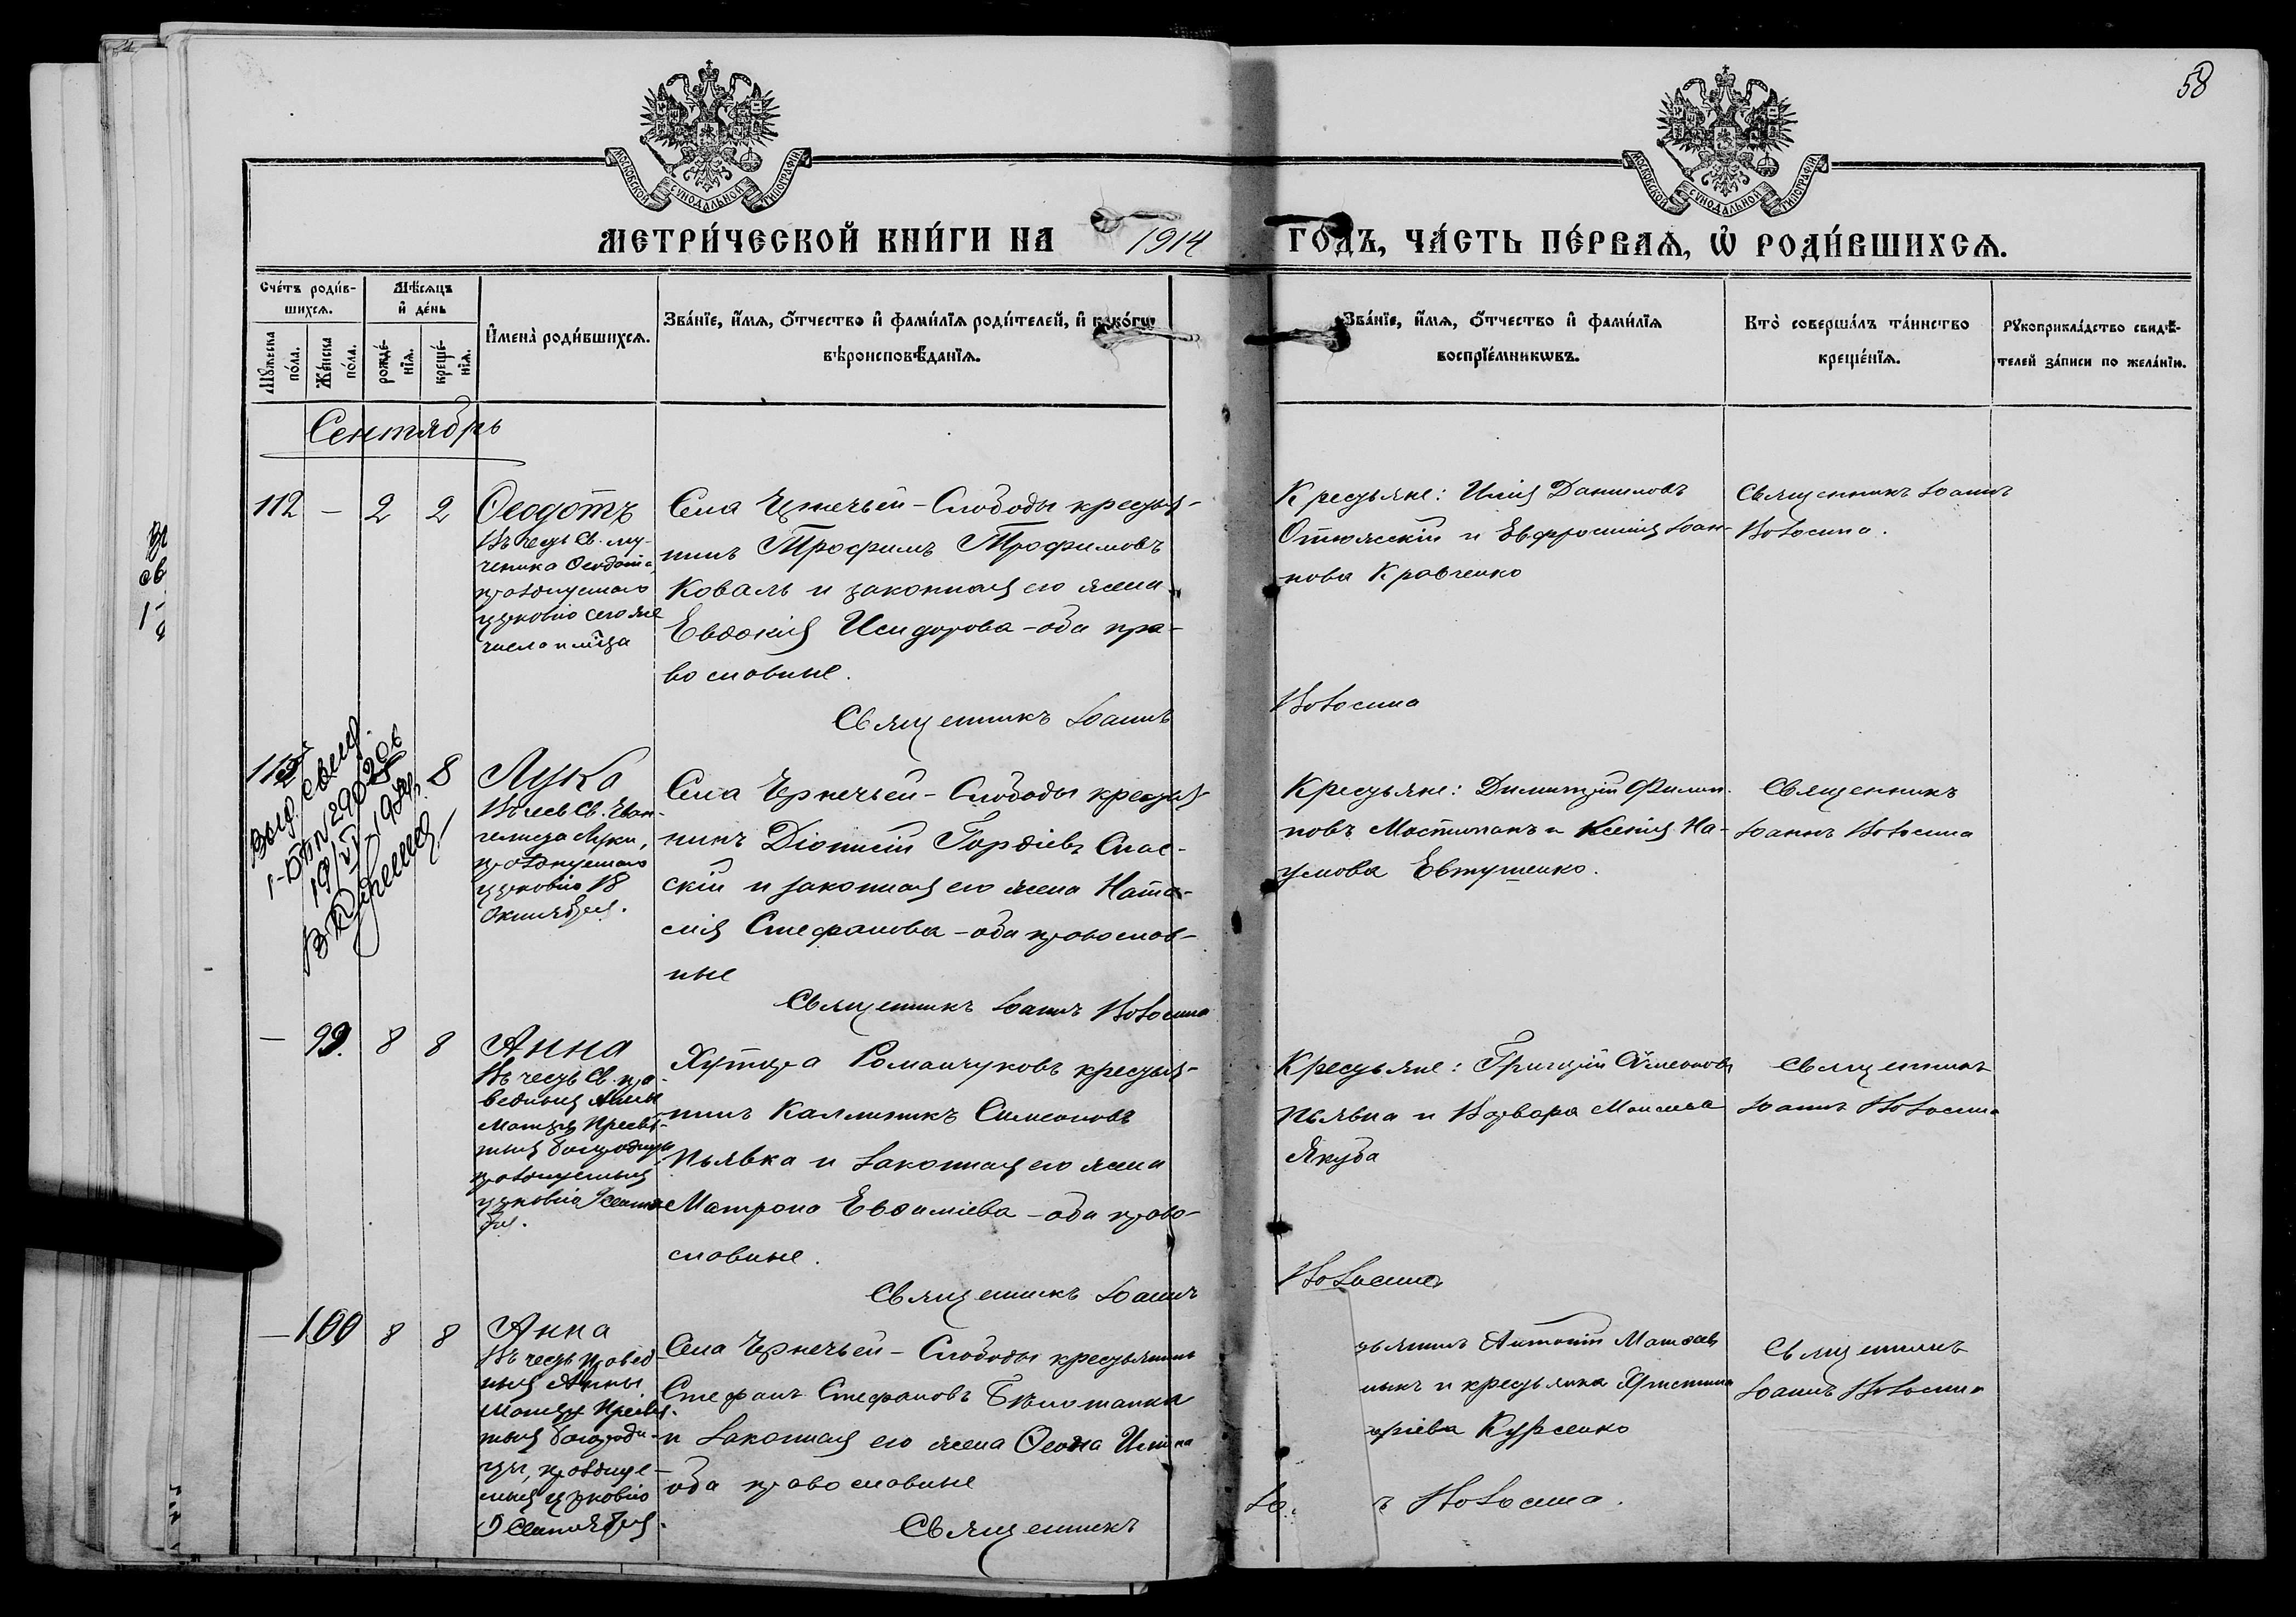 58
МОСКОВСКОЙ СѴНОДАЛЬНОЙ ТИПОГРАФІИ
МОСКОВСКОЙ СѴНОДАЛЬНОЙ ТИПОГРАФІИ
МЕТРИ́ЧЕСКОЙ КНИ́ГИ НА 1914 ГОДЪ, ЧА́СТЬ ПЕ́РВАѦ, Ѡ҆ РОДИ́ВШИХСѦ.
Сче́тъ роди́в-
шихсѧ.
Мꙋ́жеска
по́ла.
Же́нска
по́ла.
Мѣ́сѧцъ
и҆ де́нь
рожде́-
нїѧ.
креще́-
нїѧ.
И҆мена̀ роди́вшихсѧ.
Зва́нїе, и҆́мѧ, ѻ҆́тчество и҆ фами́лїѧ роди́телей, и҆ како́гѡ
вѣроисповѣ́данїѧ.
Зва́нїе, и҆́мѧ, ѻ҆́тчество и҆ фами́лїѧ
воспрїе́мникѡвъ.
Кто̀ соверша́лъ та́инство
креще́нїѧ.
Рꙋкоприкла́дство свидѣ́-
телей за́писи по жела́нїю.
Сентябрь
112 - 2 2
Ѳеодотъ
Въ честь Св. му-
ченика Ѳеодота,
празднуемаго
церковію сего же
числа и мѣсяца
Села Чернечьей-Слободы крестья-
нинъ Трофимъ Трофимовъ
Коваль и законная его жена
Евдокія Исидорова - оба пра-
вославные.
Священникъ Іоаннъ Волосина
Крестьяне: Илія Даниловъ
и Евфросинія Іоан-
нова Кравченко
Священникъ Іоаннъ
Волосина.
113 8
Выд. свид.
Лука
Въ честь Св. Еван-
гелиста Луки,
празднуемаго
церковію 18
Октября.
Села Чернечьей-Слободы крестья-
нинъ Діонисій Гордіевъ Спас-
скій и законная его жена Ната-
лія Стефанова - оба православ-
ные
Священникъ Іоаннъ Волосина
Крестьяне: Димитрій Филип-
повъ Мостипанъ и Ксенія На-
умова Евтушенко.
Священникъ
Іоаннъ Волосина
- 99. 8 8
Анна
Въ честь Св. пра-
ведныя Анны
Матери Пресвя-
тыя Богородицы
празднуемыя
церковію 9 Сентя-
бря.
Хутора Романчуковъ крестья-
нинъ Каллиникъ Симеоновъ
Пьявка и законная его жена
Матрона Евфиміева - оба право-
славные.
Священникъ Іоаннъ Волосина
Крестьяне: Григорій Симеоновъ
Пьявка и Варвара Моисеева
Якуба
Священникъ
Іоаннъ Волосина
- 100 8 8
Анна
Въ честь Правед-
ныя Анны
Матери Пресвя-
тыя Богороди-
цы, празднуе-
мыя церковію
9 Сентября.
Села Чернечьей-Слободы крестьянинъ
Стефанъ Стефановъ
и законная его жена
оба православные
Священникъ Волосина.
Антоній
и крестьянка Христина
Священникъ
Іоаннъ Волосина